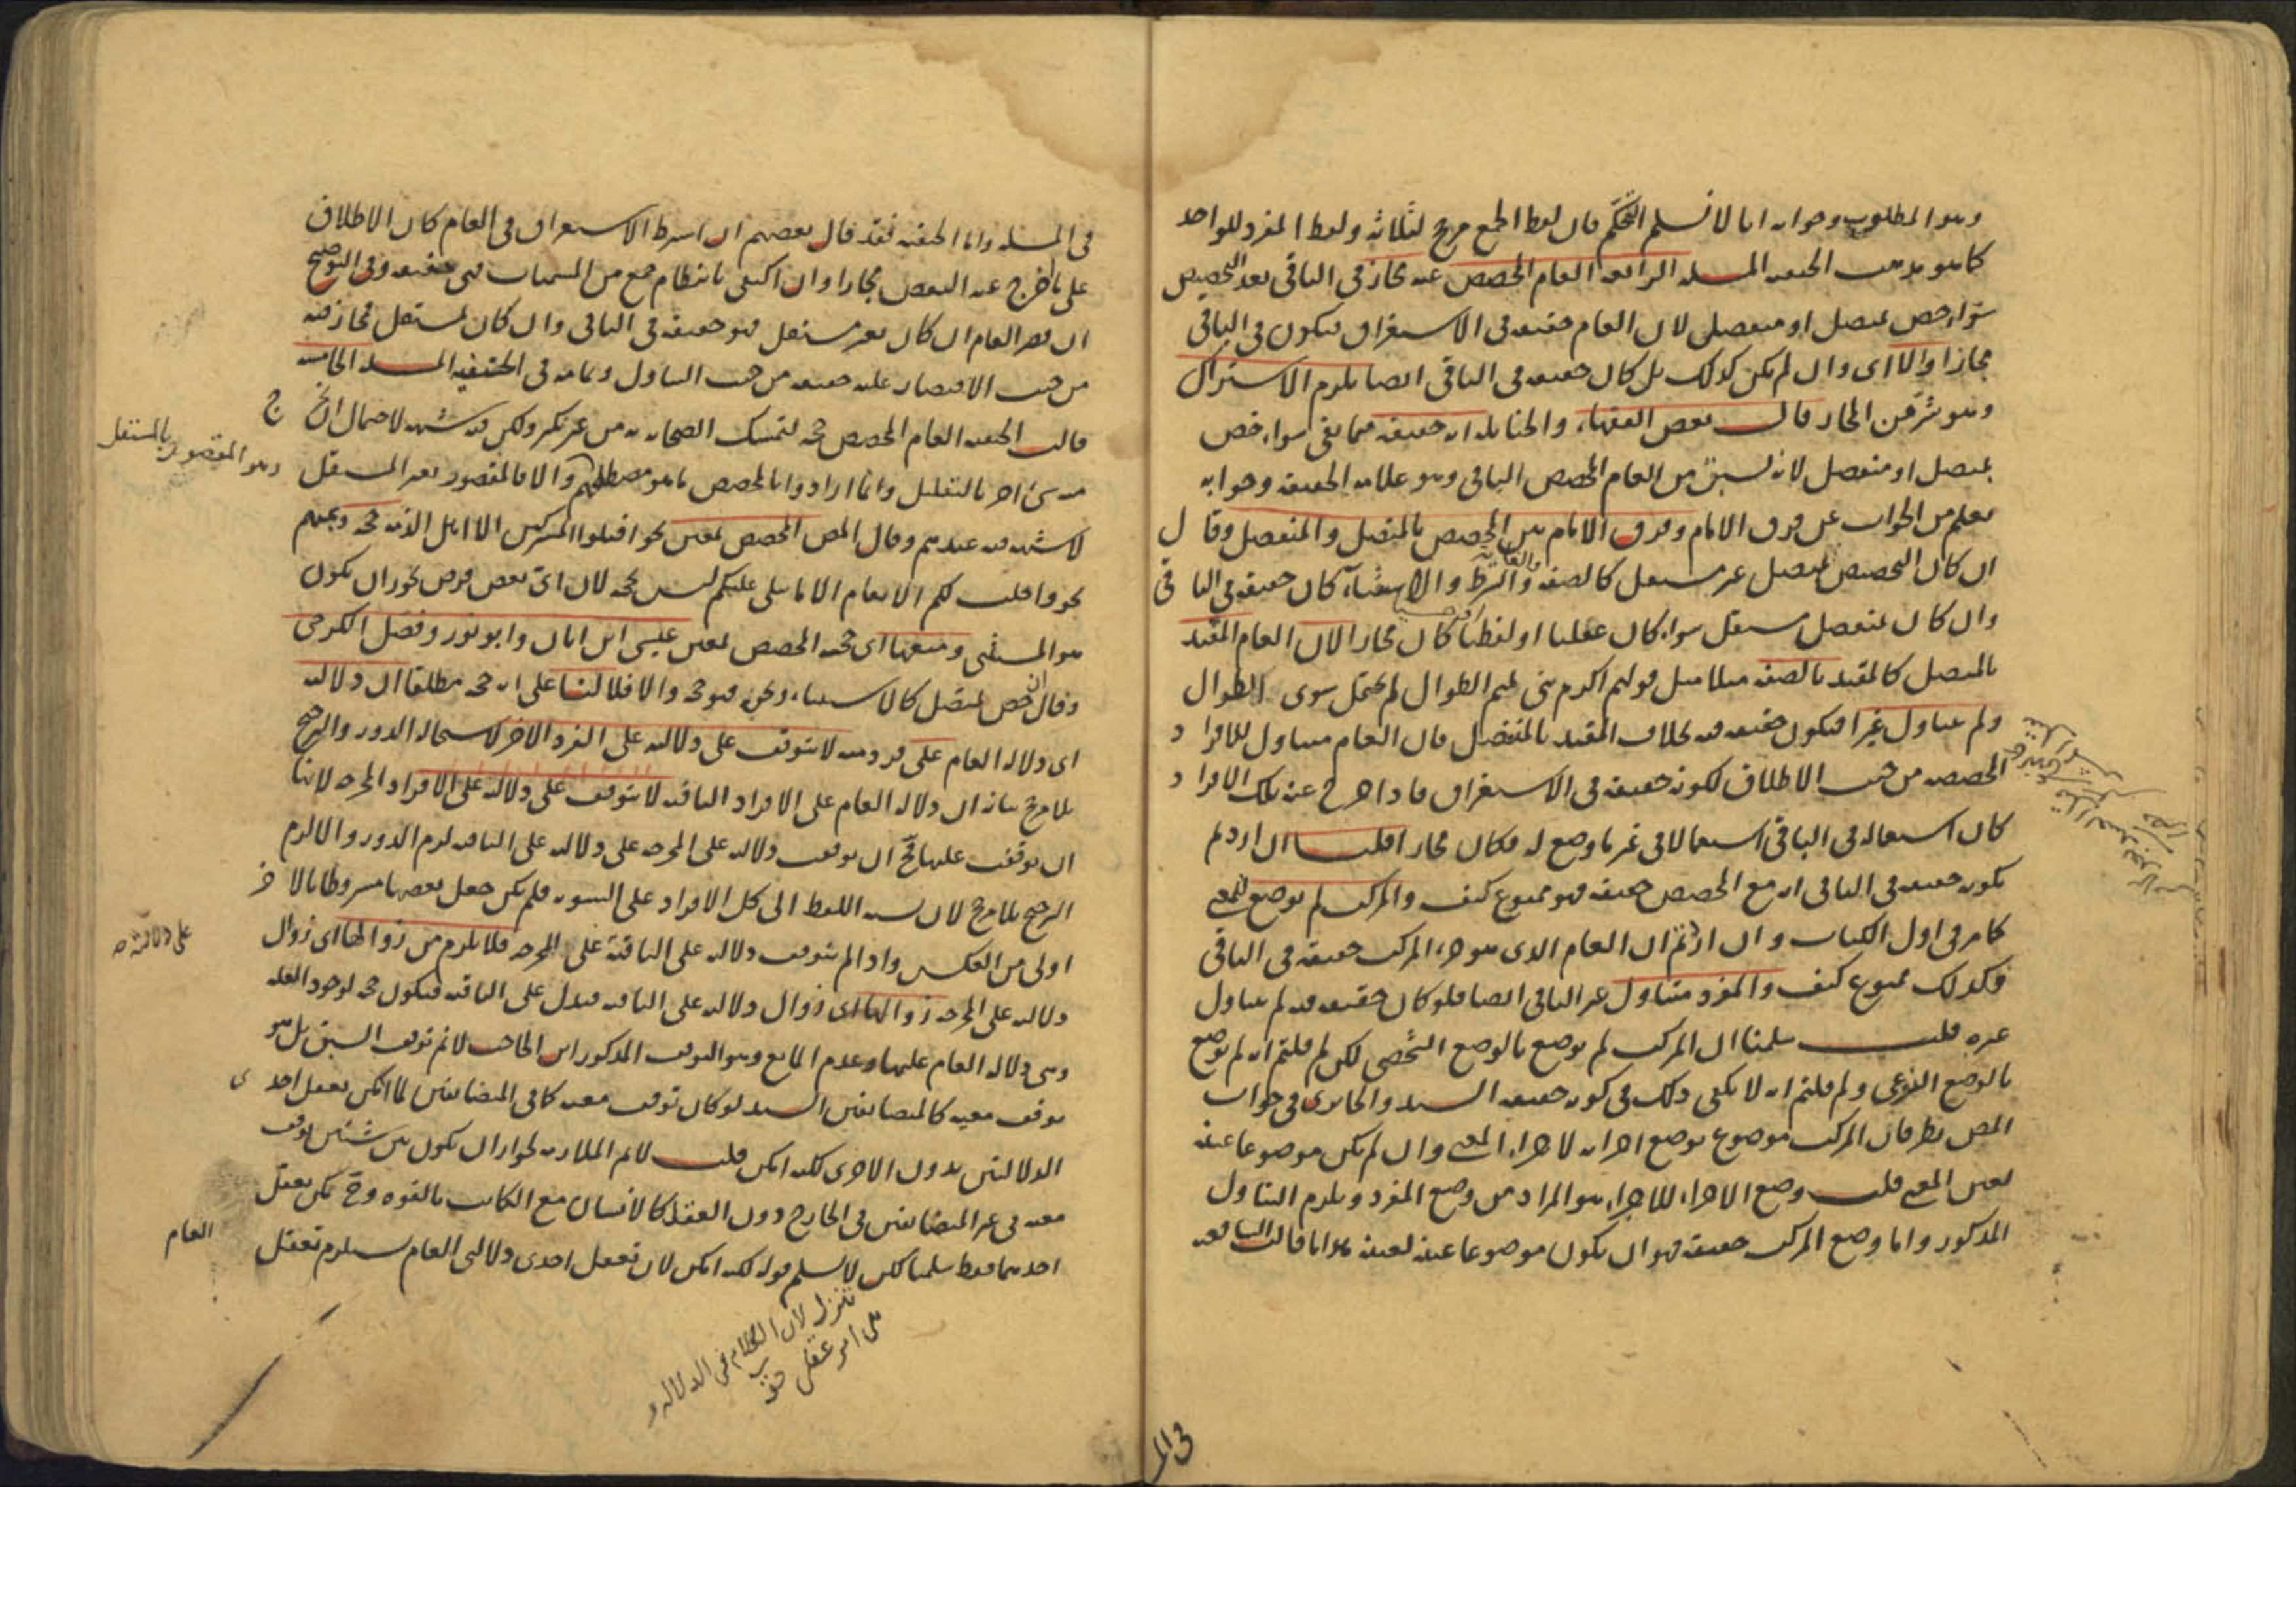 وهو المطلوب وجوابه انا لا نسلم التحكم فان لفظ الجمع مرجح لثلاثة ولفظ المفرد للواحد
كما هو مذهب الحنفيه المسله الرابعه العام المخصص عنه مجاز في الباقى بعد التخصيص
سواء خص بمتصل او منفصل لان العام حقيقه في الاستغراق فيكون في الباقى
مجازا والا اى وان لم يكن كذلك بل كان حقيقه في الباقى ايضا يلزم الاشتراك
وهو شر من المجاز قالت بعض الفقهاء والحنابله انه حقيقه فيما بقى سواء خص
بمتصل او منفصل لانه يسبق من العام المخصص الباقى وهو علامه الحقيقه وجوابه
يعلم من الجواب عن فرق الامام وفرق الامام بين المخصص بالمتصل والمنفصل وقال
ان كان التخصيص بمتصل غير مستقل كالصفه والشرط والغايه والاستثناء كان حقيقه في الباقى
وان كان بمنفصل مستقل سواء كان عقليا او لفظيا كان مجازا لان العام المقيد
بالمتصل كالمقيد بالصفه مثلا مثل قولهم اكرم بنى تميم الطوال لم يحتمل سوى الطوال
ولم يتناول غيرا فيكون حقيقه فيه بخلاف المقيد بالمنفصل فان العام متناول للافراد
المخصصه من حيث الاطلاق لكونه حقيقه في الاستغراق فاذا خرج عنه تلك الافراد
كان استعماله في الباقى استعمالا في غير ما وضع له فكان مجازا قلت ان اردتم
بكونه حقيقه في الباقى انه مع المخصص حقيقه فهو ممنوع كيف والمركب لم يوضع للمعنى
كما مر في اول الكتاب وان اردتم ان العام الذى هو جزء المركب حقيقه في الباقى
فكذلك ممنوع كيف والمفرد متناول غير الباقى ايضا فلو كان حقيقه فيه لم يتناول
غيره قلت سلمنا ان المركب لم يوضع بالوضع الشخصى لكن لم قلتم انه لم يوضع
بالوضع النوعى ولم قلتم انه لا يكفى ذلك في كونه حقيقه السيد والجاربردى في جواب
المص نظر فان المركب موضوع بوضع اجزائه لاجزاء المعنى وان لم يكن موضوعا عينه
لعين المعنى قلت وضع الاجزاء للاجزاء هو المراد من وضع المفرد ويلزم التناول
المذكور واما وضع المركب حقيقه فهو ان يكون موضوعا عينه لعينه هذا ما قالت الشافعيه
في الم
في المسله واما الحنفيه فقد قال بعضهم ان اشترط الاستغراق في العام كان الاطلاق
على ما خرج عنه البعض مجازا وان اكتفى بانتظام جمع من المسميات فهى حقيقه وفى التوضيح
ان قصر العام ان كان بغير مستقل فهو حقيقه في الباقى وان كان بمستقل فمجاز فيه
من حيث الاقتصار عليه حقيقه من حيث التناول وتمامه في الحنفيه المسله الخامسه
قالت الحنفيه العام المخصص حجه لتمسك الصحابه به من غير نكير ولكن فيه شبهه لاحتمال ان خرج
منه شئ اخر بالتعليل وانما ارادوا بالمخصص ما هو مصطلحهم وهو المقصور بالمستقل والا فالمقصور بغير المستقل
لا شبهه فيه عندهم وقال المص المخصص بمعين نحو اقتلوا المشركين الا اهل الذمه حجه وبمبهم
نحو احلت لكم الانعام الا ما يتلى عليكم ليس بحجه لان اى بعض فرض يجوز ان يكون
هو المستثنى ومنعها اى حجيه المخصص بمعين عيسى ابن ابان وابو ثور وفصل الكرخى
وقال ان خص بمتصل كالاستثناء وغيره فهو حجه والا فلا لنا على انه حجه مطلقا ان دلالته
اى دلاله العام على فرد منه لا يتوقف على دلالته على الفرد الاخر لاستحاله الدور والترجيح
بلا مرجح بيانه ان دلاله العام على الافراد الباقيه لا يتوقف على دلالته على الافراد المخرجه لانها
ان توقفت عليها فح ان توقف دلالته على المخرجه على دلالته على الباقيه لزم الدور والا لزم
الترجيح بلا مرجح لان نسبه اللفظ الى كل الافراد على السويه فلم يكن جعل بعضها مشروطا بالاخر
اولى من العكس واذا لم يتوقف دلالته على الباقيه على دلالته على المخرجه فلا يلزم من زوالها اى زوال
دلالته على المخرجه زوالها اى زوال دلالته على الباقيه فيدل على الباقيه فيكون حجه لوجود العله
وهى دلاله العام عليها وعدم المانع وهو التوقف المذكور ابن الحاجب لا ثم توقف السبق بل هو
توقف معيه كالمتضايفين السيد لو كان توقف معيه كما في المتضايفين لما امكن تعقل احدى
الدلالتين بدون الاخرى لكنه امكن قلت لا ثم الملازمه لجواز ان يكون بين شيئين توقف
معيه في غير المتضايفين في الخارج دون العقل كالانسان مع الكاتب بالقوه وح يمكن تعقل
احدهما فقط سلمنا لكن لا نسلم قوله لكنه امكن لان تعقل احدى دلالتى العام يستلزم تعقل
العام
تنزل لان الكلام في الدلاله و